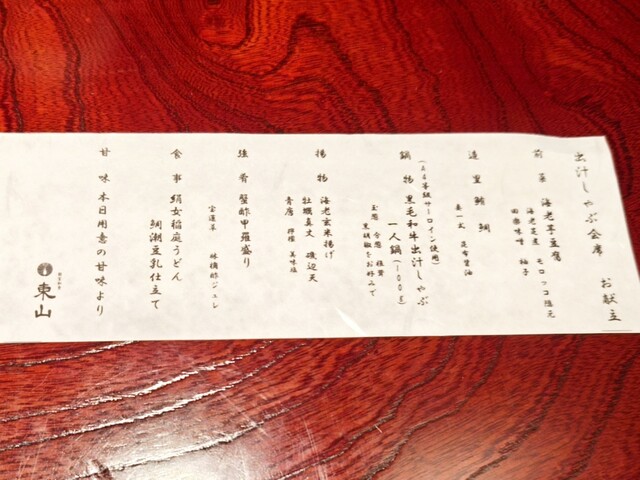 出汁しゃぶ会席 お献立
前菜 海老芋豆腐
海老芝煮 モロッコ隠元
田楽味噌 柚子
造里 鮪 鯛
妻一式 昆布醤油
鍋物 黒毛和牛出汁しゃぶ
一人鍋(100g)
(A4等級サーロイン使用)
玉葱 分葱 椎茸
黒胡椒をお好みで
揚物 海老玄米揚げ
牡蠣真丈 磯辺天
青唐 檸檬 美味塩
強肴 蟹酢甲羅盛り
林檎酢ジュレ
食事 絹女稲庭うどん
鯛潮豆乳仕立て
甘味 本日用意の甘味より
東山